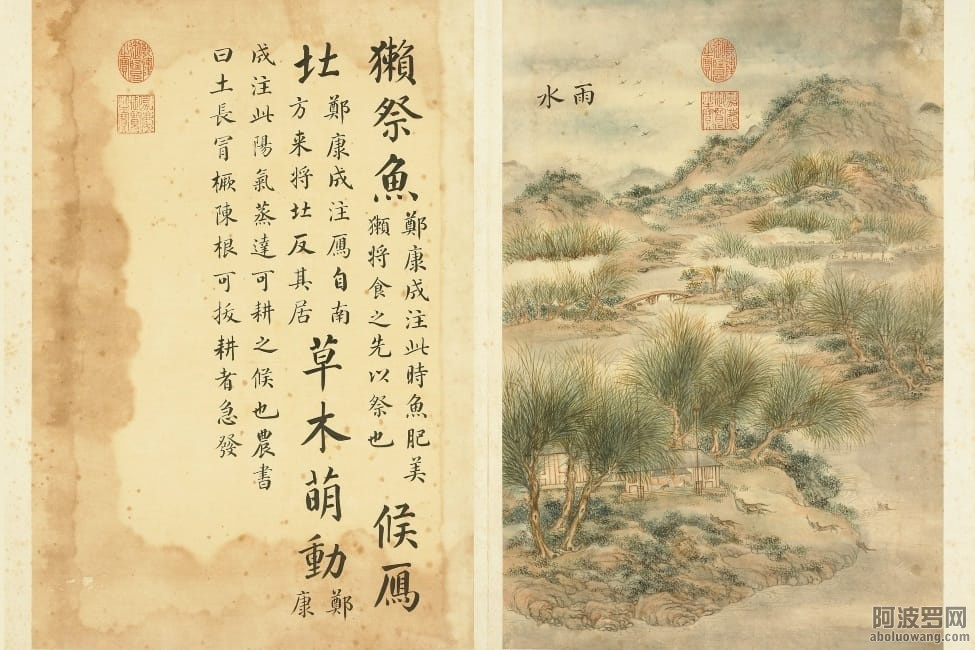 雨水
獺祭魚
鄭康成注此時魚肥美
獺將食之先以祭也
候鴈
北
鄭康成注鴈自南
方来將北反其居
草木萌動
鄭
康
成注此陽氣蒸達可耕之候也農書
曰土長冐橛陳根可拔耕者急發
阿波罗网
aboluowang.com